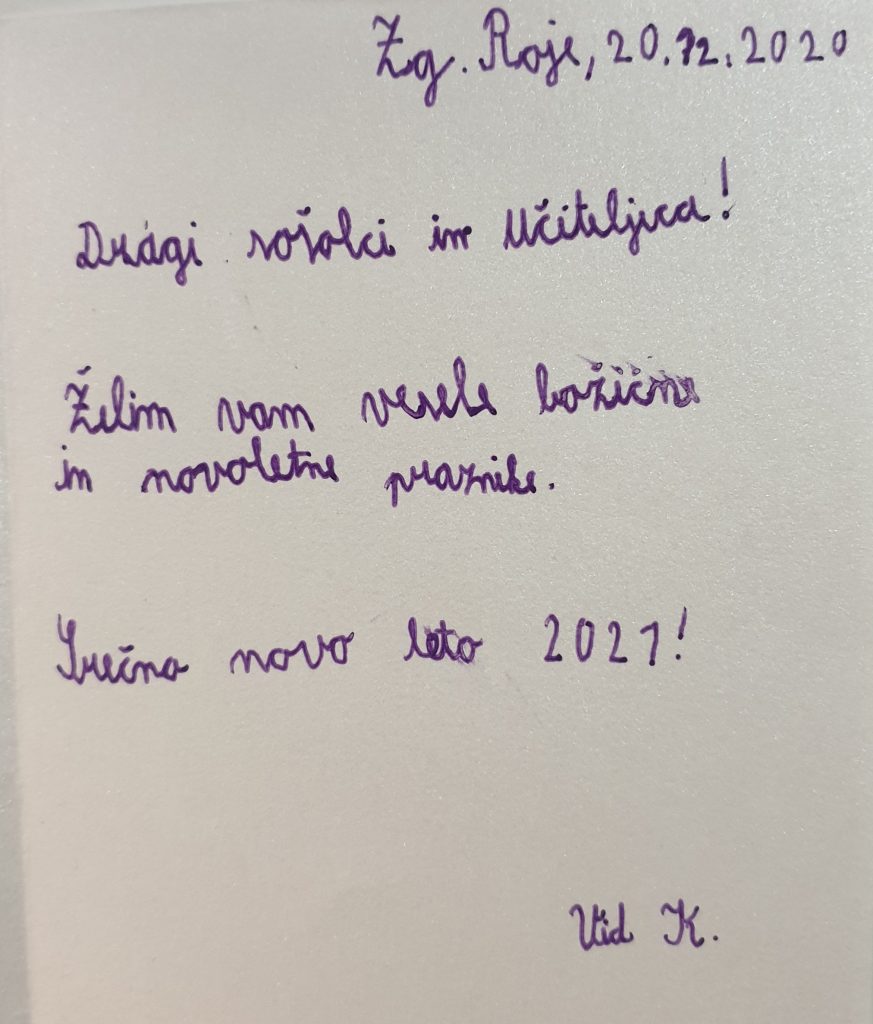 Zg. Roje, 20.12.2020
Dragi sošolci in Učiteljica!
Želim vam vesele božične
in novoletne praznike.
Srečno novo leto 2021!
Vid K.